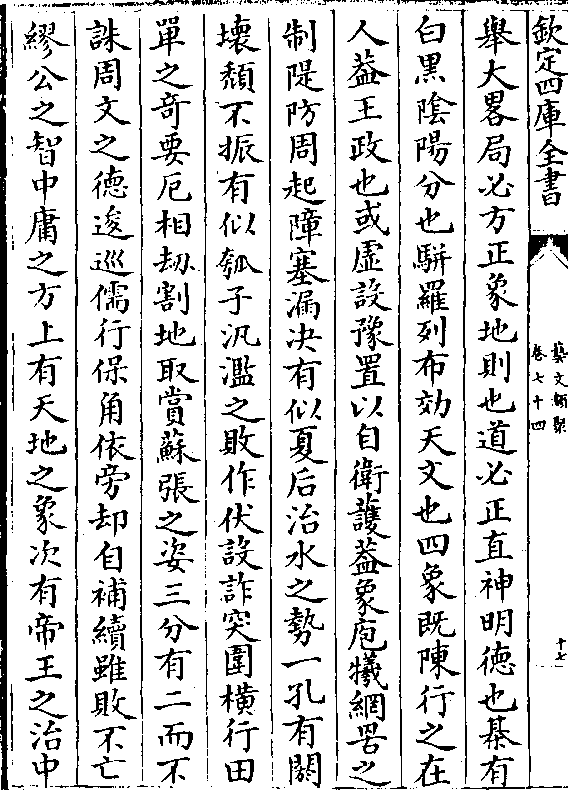 欽定四庫全書
藝文類聚
卷七十四
十七
舉大畧局必方正象地則也道必正直神明德也棊有
白黑陰陽分也駢羅列布効天文也四象既陳行之在
人葢王政也或虛設豫置以自衛䕶葢象庖犧網罟之
制隄防周起障塞漏决有似夏后治水之勢一孔有闕
壞頹不振有似瓠子汎濫之敗作伏設詐突圍橫行田
單之竒要厄相刼割地取賞蘇張之姿三分有二而不
誅周文之德逡巡儒行保角依旁却自補續雖敗不亡
繆公之智中庸之方上有天地之象次有帝王之治中